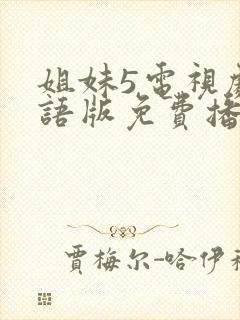 姐妹5電視
語版免費播
賈梅尔-哈伊